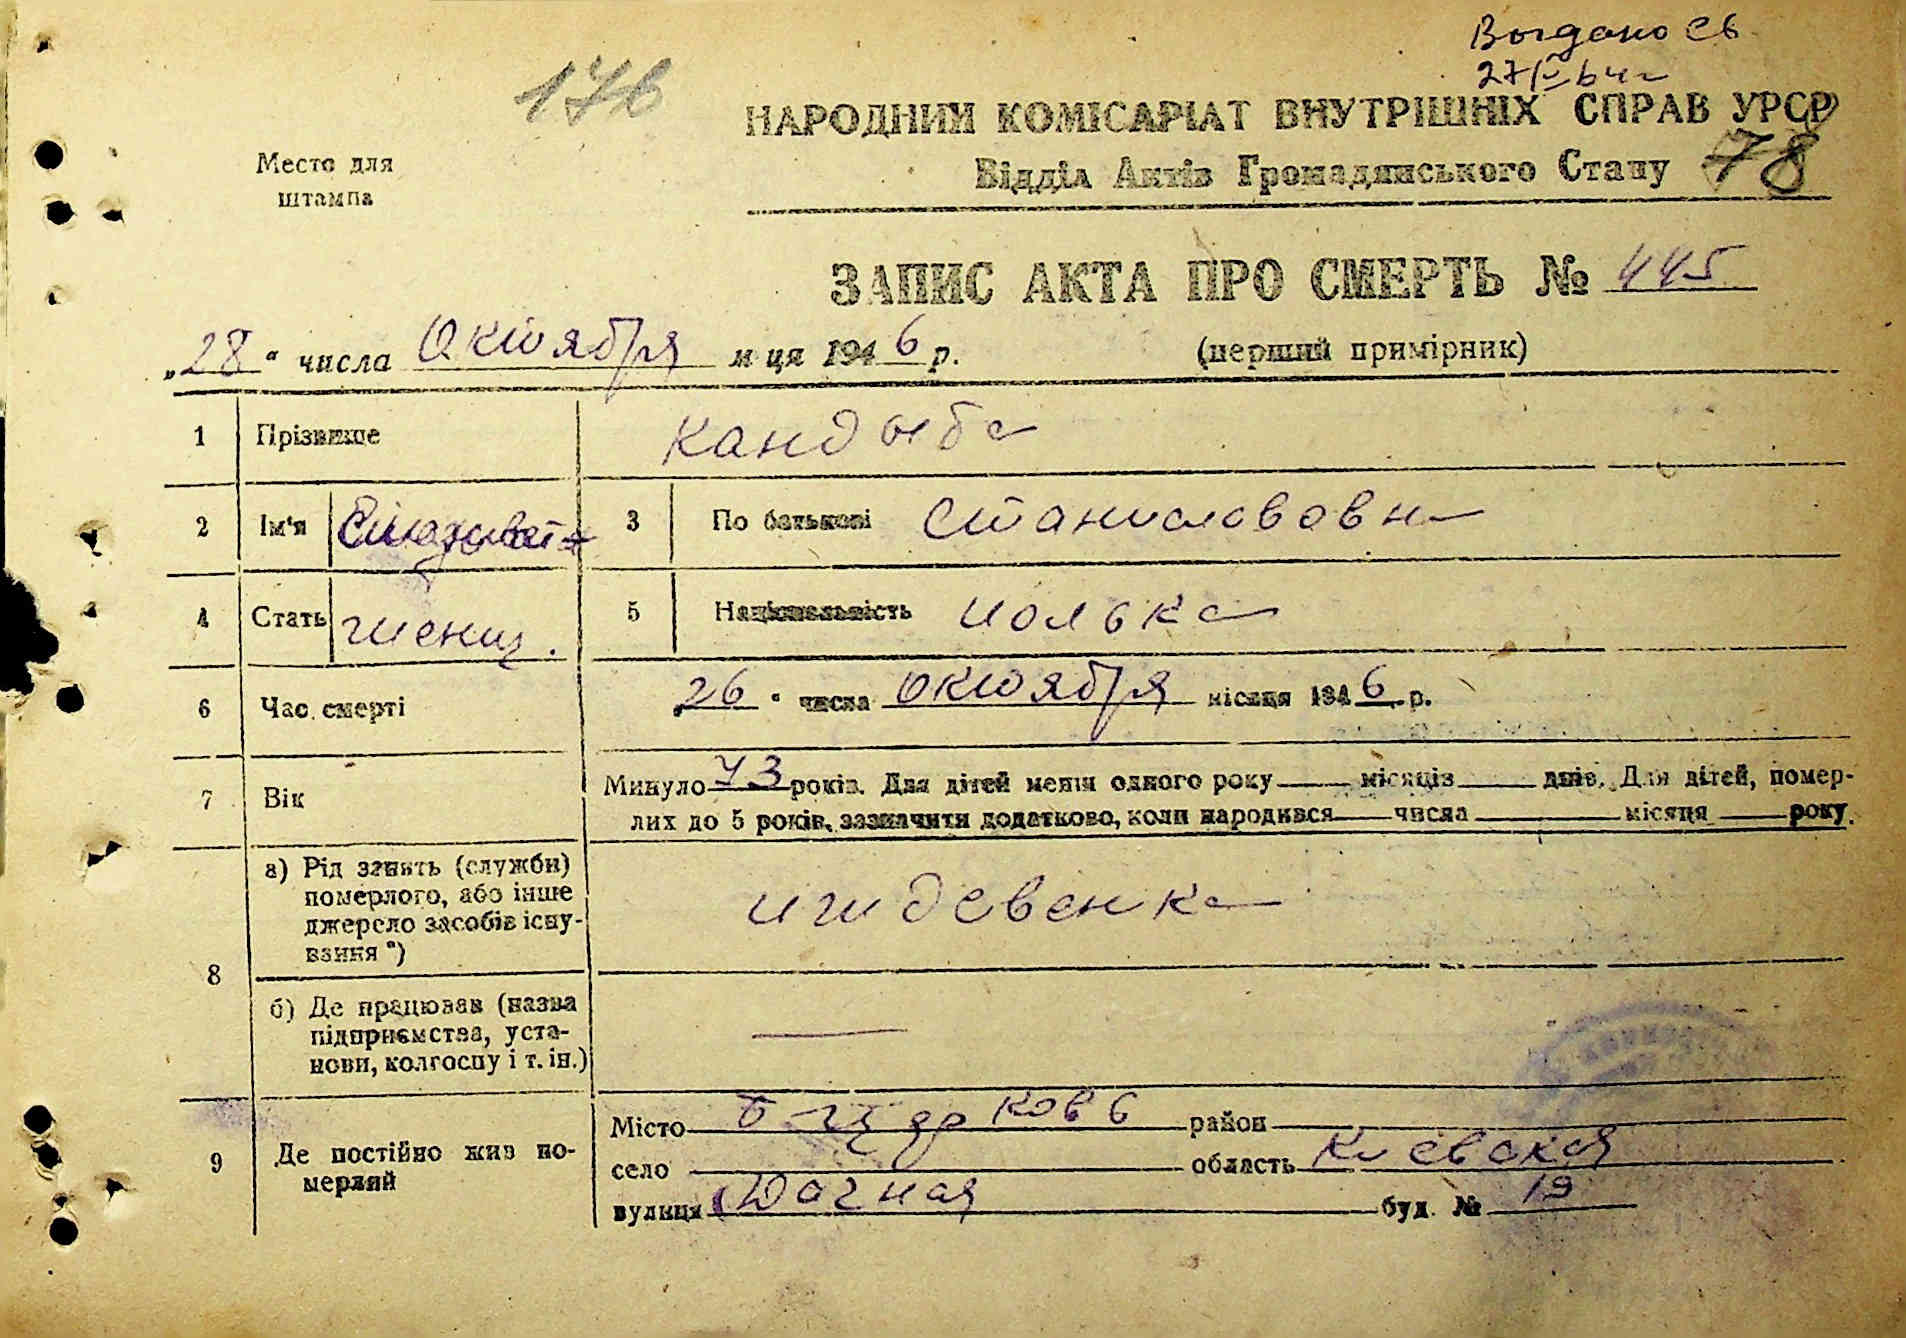 Выдано св
27/V-64г
176
НАРОДНИЙ КОМІСАРІАТ ВНУТРІШНІХ СПРАВ УРСР
Відділ Актів Громадянського Стану 78
Место для
штампа
ЗАПИС АКТА ПРО СМЕРТЬ № 445
„28“ числа Октября м-ця 1946 р. (перший примірник)
1 Прізвище Кандыба
2 Ім'я Елизавета 3 По батькові Станиславовн
4 Стать женщ. 5 Національність полька
6 Час смерті „26“ числа Октября місяця 1946 р.
7 Вік Минуло 73 років. Для дітей менш одного року місяців днів. Для дітей, помер-
лих до 5 років, зазначити додатково, коли народився числа місяця року.
8 а) Рід занять (служби)
померлого, або інше
джерело засобів існу-
вання*) иждевенка
б) Де працював (назва
підприємства, уста-
нови, колгоспу і т. ін.) —
9 Де постійно жив по-
мерлий
Місто район
село область Киевская
вулиця Дачная буд. № 19